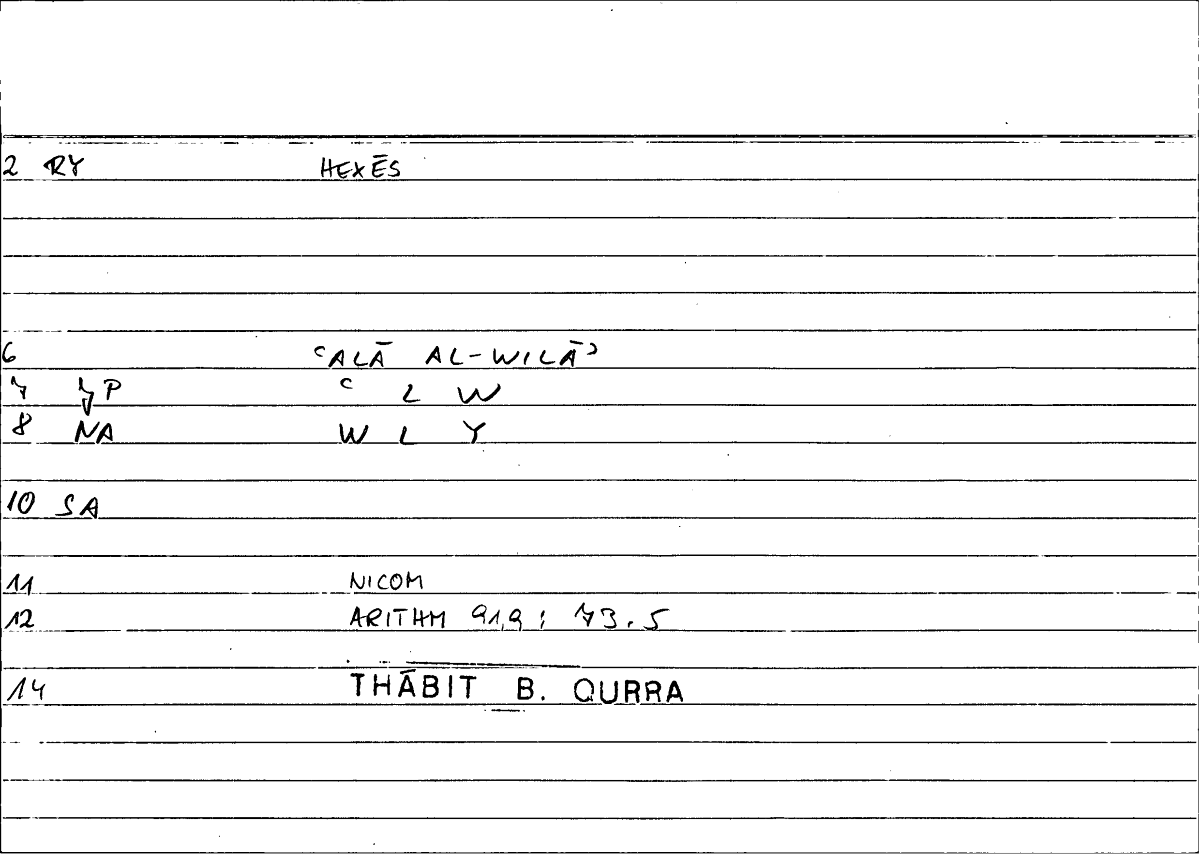 2 RY HEXĒS
6 ʿALĀ AL-WILĀʾ
7 JP ʿ L W
8 NA W L Y
10 SA
11 NICOM
12 ARITHM 91,9 : 73.5
14 THĀBIT B. QURRA